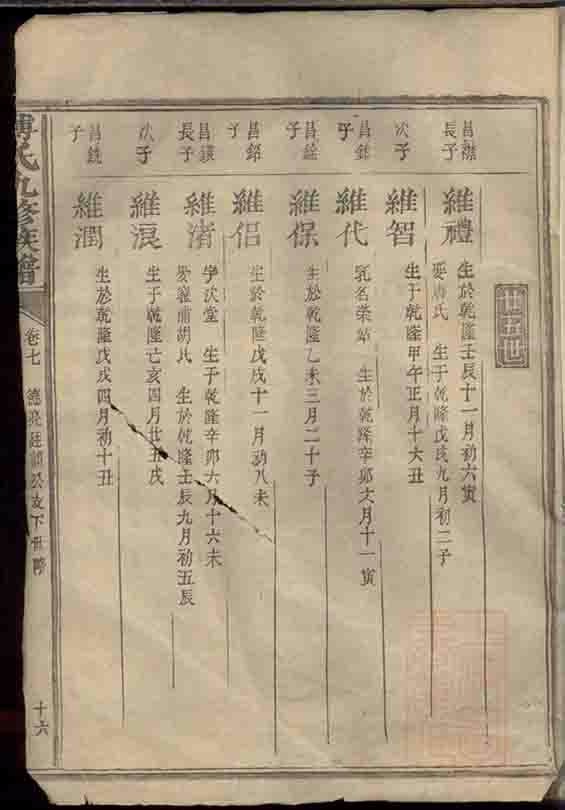 世五世
昌𥛚長子
維禮
生於乾隆壬辰十一月初六寅
娶 氏 生于乾隆戊戌九月初二子
次子
維智
生于乾隆甲午正月十六丑
昌 子
維代
乳名榮 生於乾隆辛卯 月十一寅
昌 子
維保
生於乾隆乙未三月二十子
昌銘子
維侶
生於乾隆戊戌十一月初八未
昌鏌長子
維渚
字次堂 生于乾隆辛卯六月十六未
娶 蒲胡氏 生於乾隆壬辰九月初五辰
次子
維浪
生于乾隆己亥四月廿五戌
昌銑子
維潤
生於乾隆戊戌四月初十丑
傅氏九修族譜
卷七
德 廷 公支下世 
十六